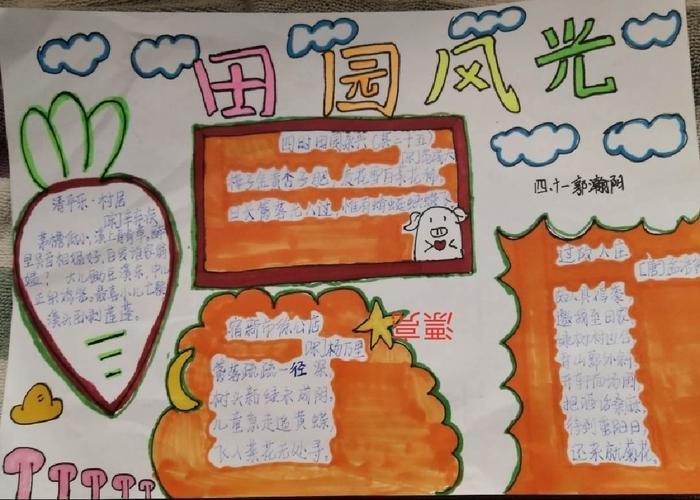 田园风光
四·十一郭瀚阳
清平乐·村居
[宋]辛弃疾
茅檐低小,溪上青青草。醉
里吴音相媚好,白发谁家翁
媪? 大儿锄豆溪东,中儿
正织鸡笼。最喜小儿亡赖,
溪头卧剥莲蓬。
四时田园杂兴(其二十五)
[宋]范成大
梅子金黄杏子肥,麦花雪白菜花稀。
日长篱落无人过,惟有蜻蜓蛱蝶飞。
宿新市徐公店
[宋]杨万里
篱落疏疏一径深,
树头新绿未成阴。
儿童急走追黄蝶,
飞入菜花无处寻。
漂亮
过故人庄
[唐]孟浩然
故人具鸡黍
邀我至田家
绿树村边合
青山郭外斜
开轩面场圃
把酒话桑麻
待到重阳日
还来就菊花。